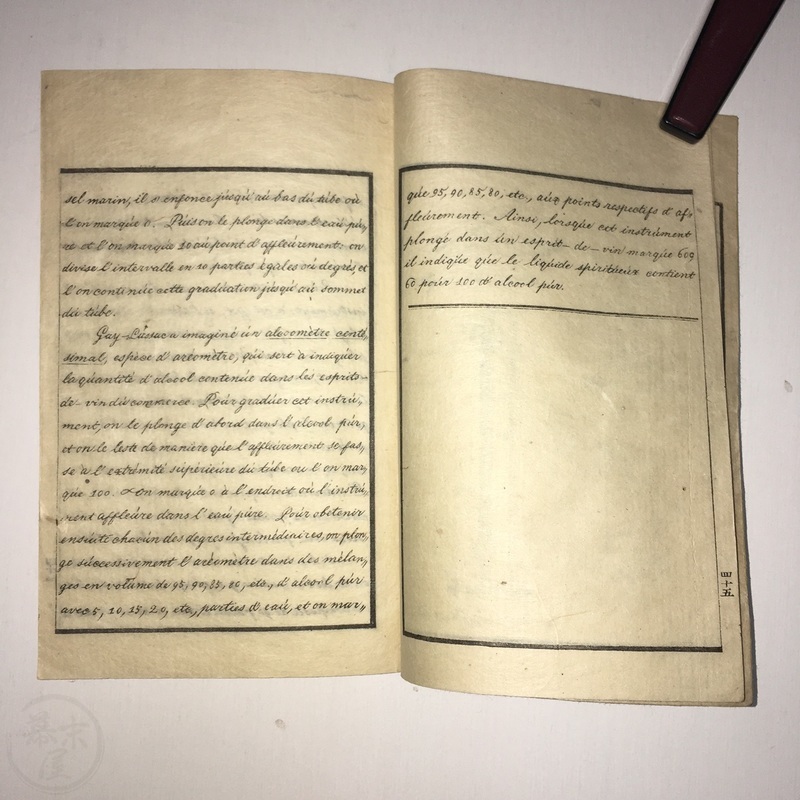 sel marin, il s'enfonce jusqu'au bas du tube où
l'on marque 0. Puis on le plonge dans l'eau pu„
re et l'on marque 10 au point d'affleurement: on
divise l'intervalle en 10 parties égales ou degrés, et
l'on continue cette graduation jusqu'au sommet
du tube.
Gay-Lussac a imaginé un alcoomètre centé„
simal, espèce d'aréomètre, qui sert à indiquer
la quantité d'alcool contenue dans les esprits-
de-vin du commerce. Pour graduer cet instru„
ment, on le plonge d'abord dans l'alcool pur,
et on le leste de manière que l'affleurement se fas„
se à l'extrémité supérieure du tube ou l'on mar„
que 100. On marque 0 à l'endroit où l'instru„
ment affleure dans l'eau pure. Pour obetenir
ensuite chacun des degres intermédiaires, on plon„
ge successivement l'aréomètre dans des mélan„
ges en volume de 95, 90, 85, 80, etc., d'alcool pur
avec 5, 10, 15, 20, etc., parties d'eau, et on mar„
que 95, 90, 85, 80, etc., aux points respectifs d'af„
fleurement. Ainsi, lorsque cet instrument
plongé dans un esprit-de-vin marque 60,
il indique que le liquide spiritueux contient
60 pour 100 d'alcool pur.
四十五
幕末屋